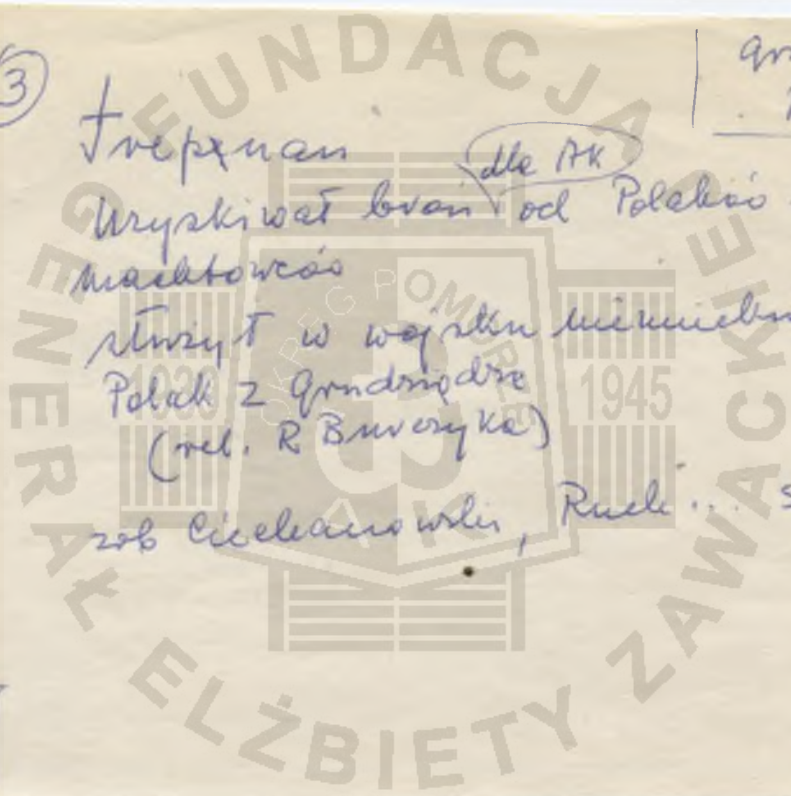 3
† Trepznan
dla AK
Uzyskiwał broń od Polaków
machtowców
służył w wojsku niemieckim
Polak z Grudziądza
(rel. R Burczyka)
zob Ciechanowski, Ruch...
FUNDACJA GENERAŁ ELŻBIETY ZAWACKIEJ
OKRĘG POMORZE
1939 1945
AK